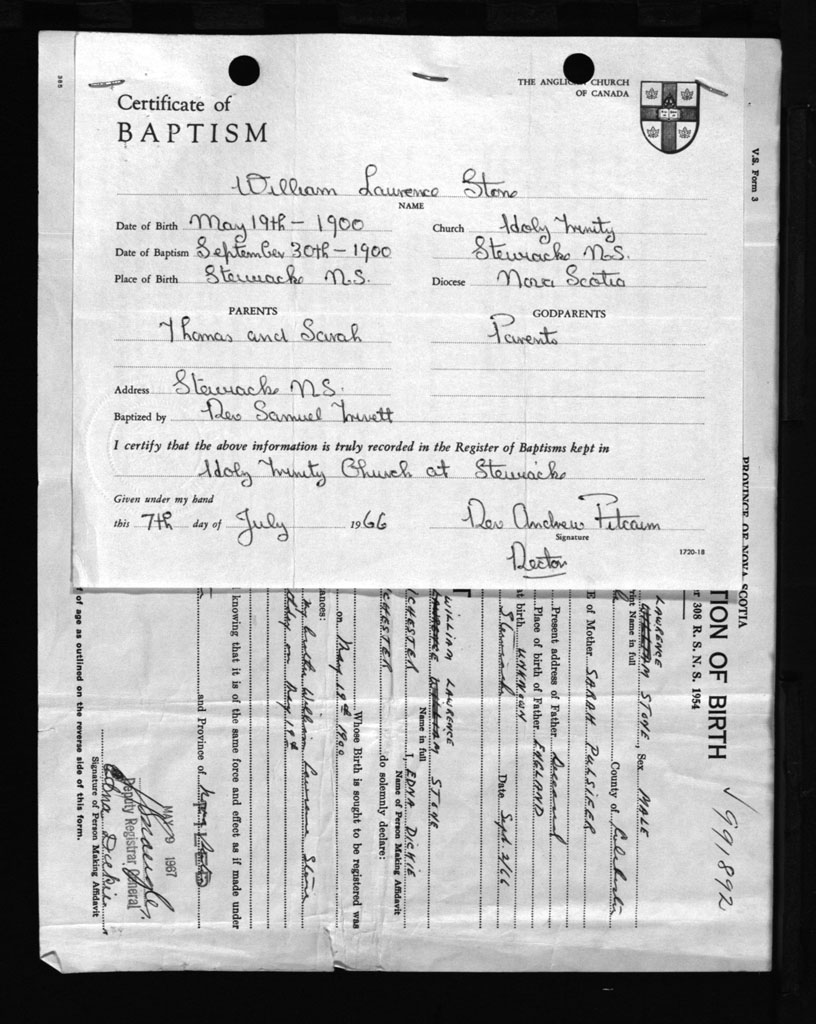 THE ANGLICAN CHURCH
OF CANADA
Certificate of
BAPTISM
William Lawrence Stone
NAME
Date of Birth May 19th - 1900
Church Holy Trinity
Date of Baptism September 30th - 1900
Stewiacke N.S.
Place of Birth Stewiacke N.S.
Diocese Nova Scotia
PARENTS
GODPARENTS
Thomas and Sarah
Parents
Address Stewiacke N.S.
Baptized by Rev Samuel Trivett
I certify that the above information is truly recorded in the Register of Baptisms kept in
Holy Trinity Church at Stewiacke
Given under my hand
this 7th day of July 1966
Rev Andrew Pitcairn
Signature
Rector
1720-18
V.S. Form 3
PROVINCE OF NOVA SCOTIA
TION OF BIRTH
√ 991892
308 R. S. N. S. 1954
LAWRENCE
WILLIAM STONE, Sex MALE
int Name in full
County of Colchester
E of Mother SARAH PULSIFER
Present address of Father Deceased
Place of birth of Father ENGLAND
at birth UNKNOWN
Stewiacke Date Sept. 2/66
WILLIAM LAWRENCE
LAWRENCE WILLIAM STONE
Name in full
CHESTER I, EDNA DICKIE
Name of Person Making Affidavit
CHESTER do solemnly declare:
Whose Birth is sought to be registered was
on May 19th 1900
ances:
My brother William Lawrence Stone
day on May 19th
knowing that it is of the same force and effect as if made under
and Province of Nova Scotia
MAY 9 1967
Deputy Registrar General
Edna Dickie
Signature of Person Making Affidavit
f of age as outlined on the reverse side of this form.